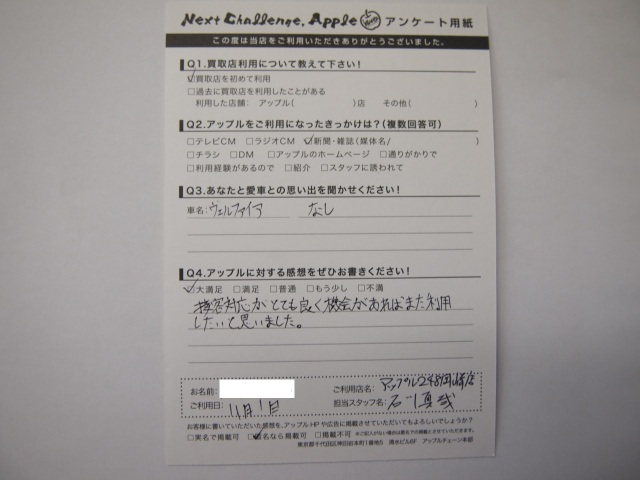 Next Challenge, Apple アンケート用紙
この度は当店をご利用いただきありがとうございました。
Q1.買取店利用について教えて下さい!
☑買取店を初めて利用
□過去に買取店を利用したことがある
利用した店舗: アップル( )店 その他( )
Q2.アップルをご利用になったきっかけは?(複数回答可)
□テレビCM □ラジオCM ☑新聞・雑誌(媒体名/ )
□チラシ □DM □アップルのホームページ □通りがかりで
□利用経験があるので □紹介 □スタッフに誘われて
Q3.あなたと愛車との思い出を聞かせください!
車名:ヴェルファイア なし
Q4.アップルに対する感想をぜひお書きください!
☑大満足 □満足 □普通 □もう少し □不満
接客対応がとても良く機会があればまた利用
したいと思いました。
お名前: ご利用店名: アップル248岡崎店
ご利用日: 11月1日 担当スタッフ名: 石川真哉
お客様に書いていただいた感想を、アップルHPや広告に掲載させていただいてもよろしいでしょうか?
□実名で掲載可 ☑匿名なら掲載可 □掲載不可 ※ご記入がない場合は匿名での掲載とさせていただきます。
東京都千代田区神田岩本町1番地5 清水ビル6F アップルチェーン本部